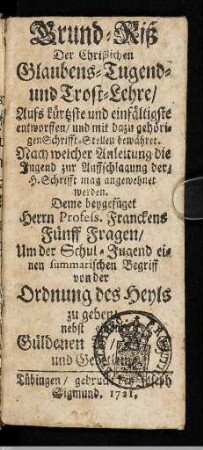 Grund-Riß
Der Christlichen
Glaubens-Tugend-
und Trost-Lehre/
Aufs kürtzste und einfältigste
entworffen/ und mit dazu gehöri-
gen Schrifft-Stellen bewähret.
Nach welcher Anleitung die
Jugend zur Auffschlagung der
H. Schrifft mag angewehnet
werden.
Deme beygefüget
Herrn Profess. Franckens
Fünff Fragen/
Um der Schul-Jugend ei-
nen summarischen Begriff
von der
Ordnung des Heyls
zu geben/
nebst
Güldenen
und
Tübingen/ gedruckt bey Joseph
Sigmund. 1721.